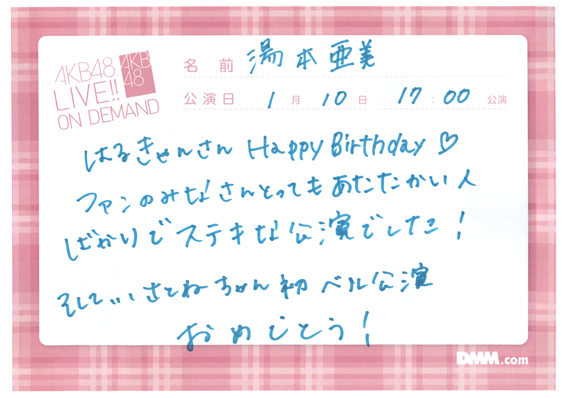 AKB48
LIVE!!
ON DEMAND
AKB
48
名 前 湯本亜美
公演日 1月10日 17:00公演
はるきゃんさん Happy Birthday♡
ファンのみなさんとってもあたたかい人
ばかりでステキな公演でした!
そして... さとねちゃん初ベル公演
おめでとう!
DMM.com